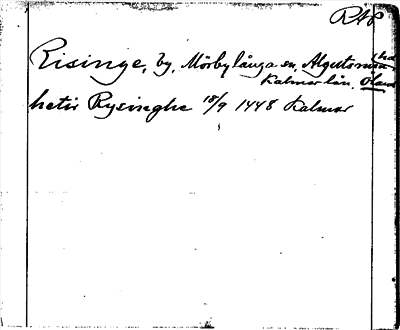 RAP
Risinge, by, Mörbylånga sn, Algutsrum hd
Kalmar län. Öland
hetir Rysinghe 18/9 1448 Kalmar